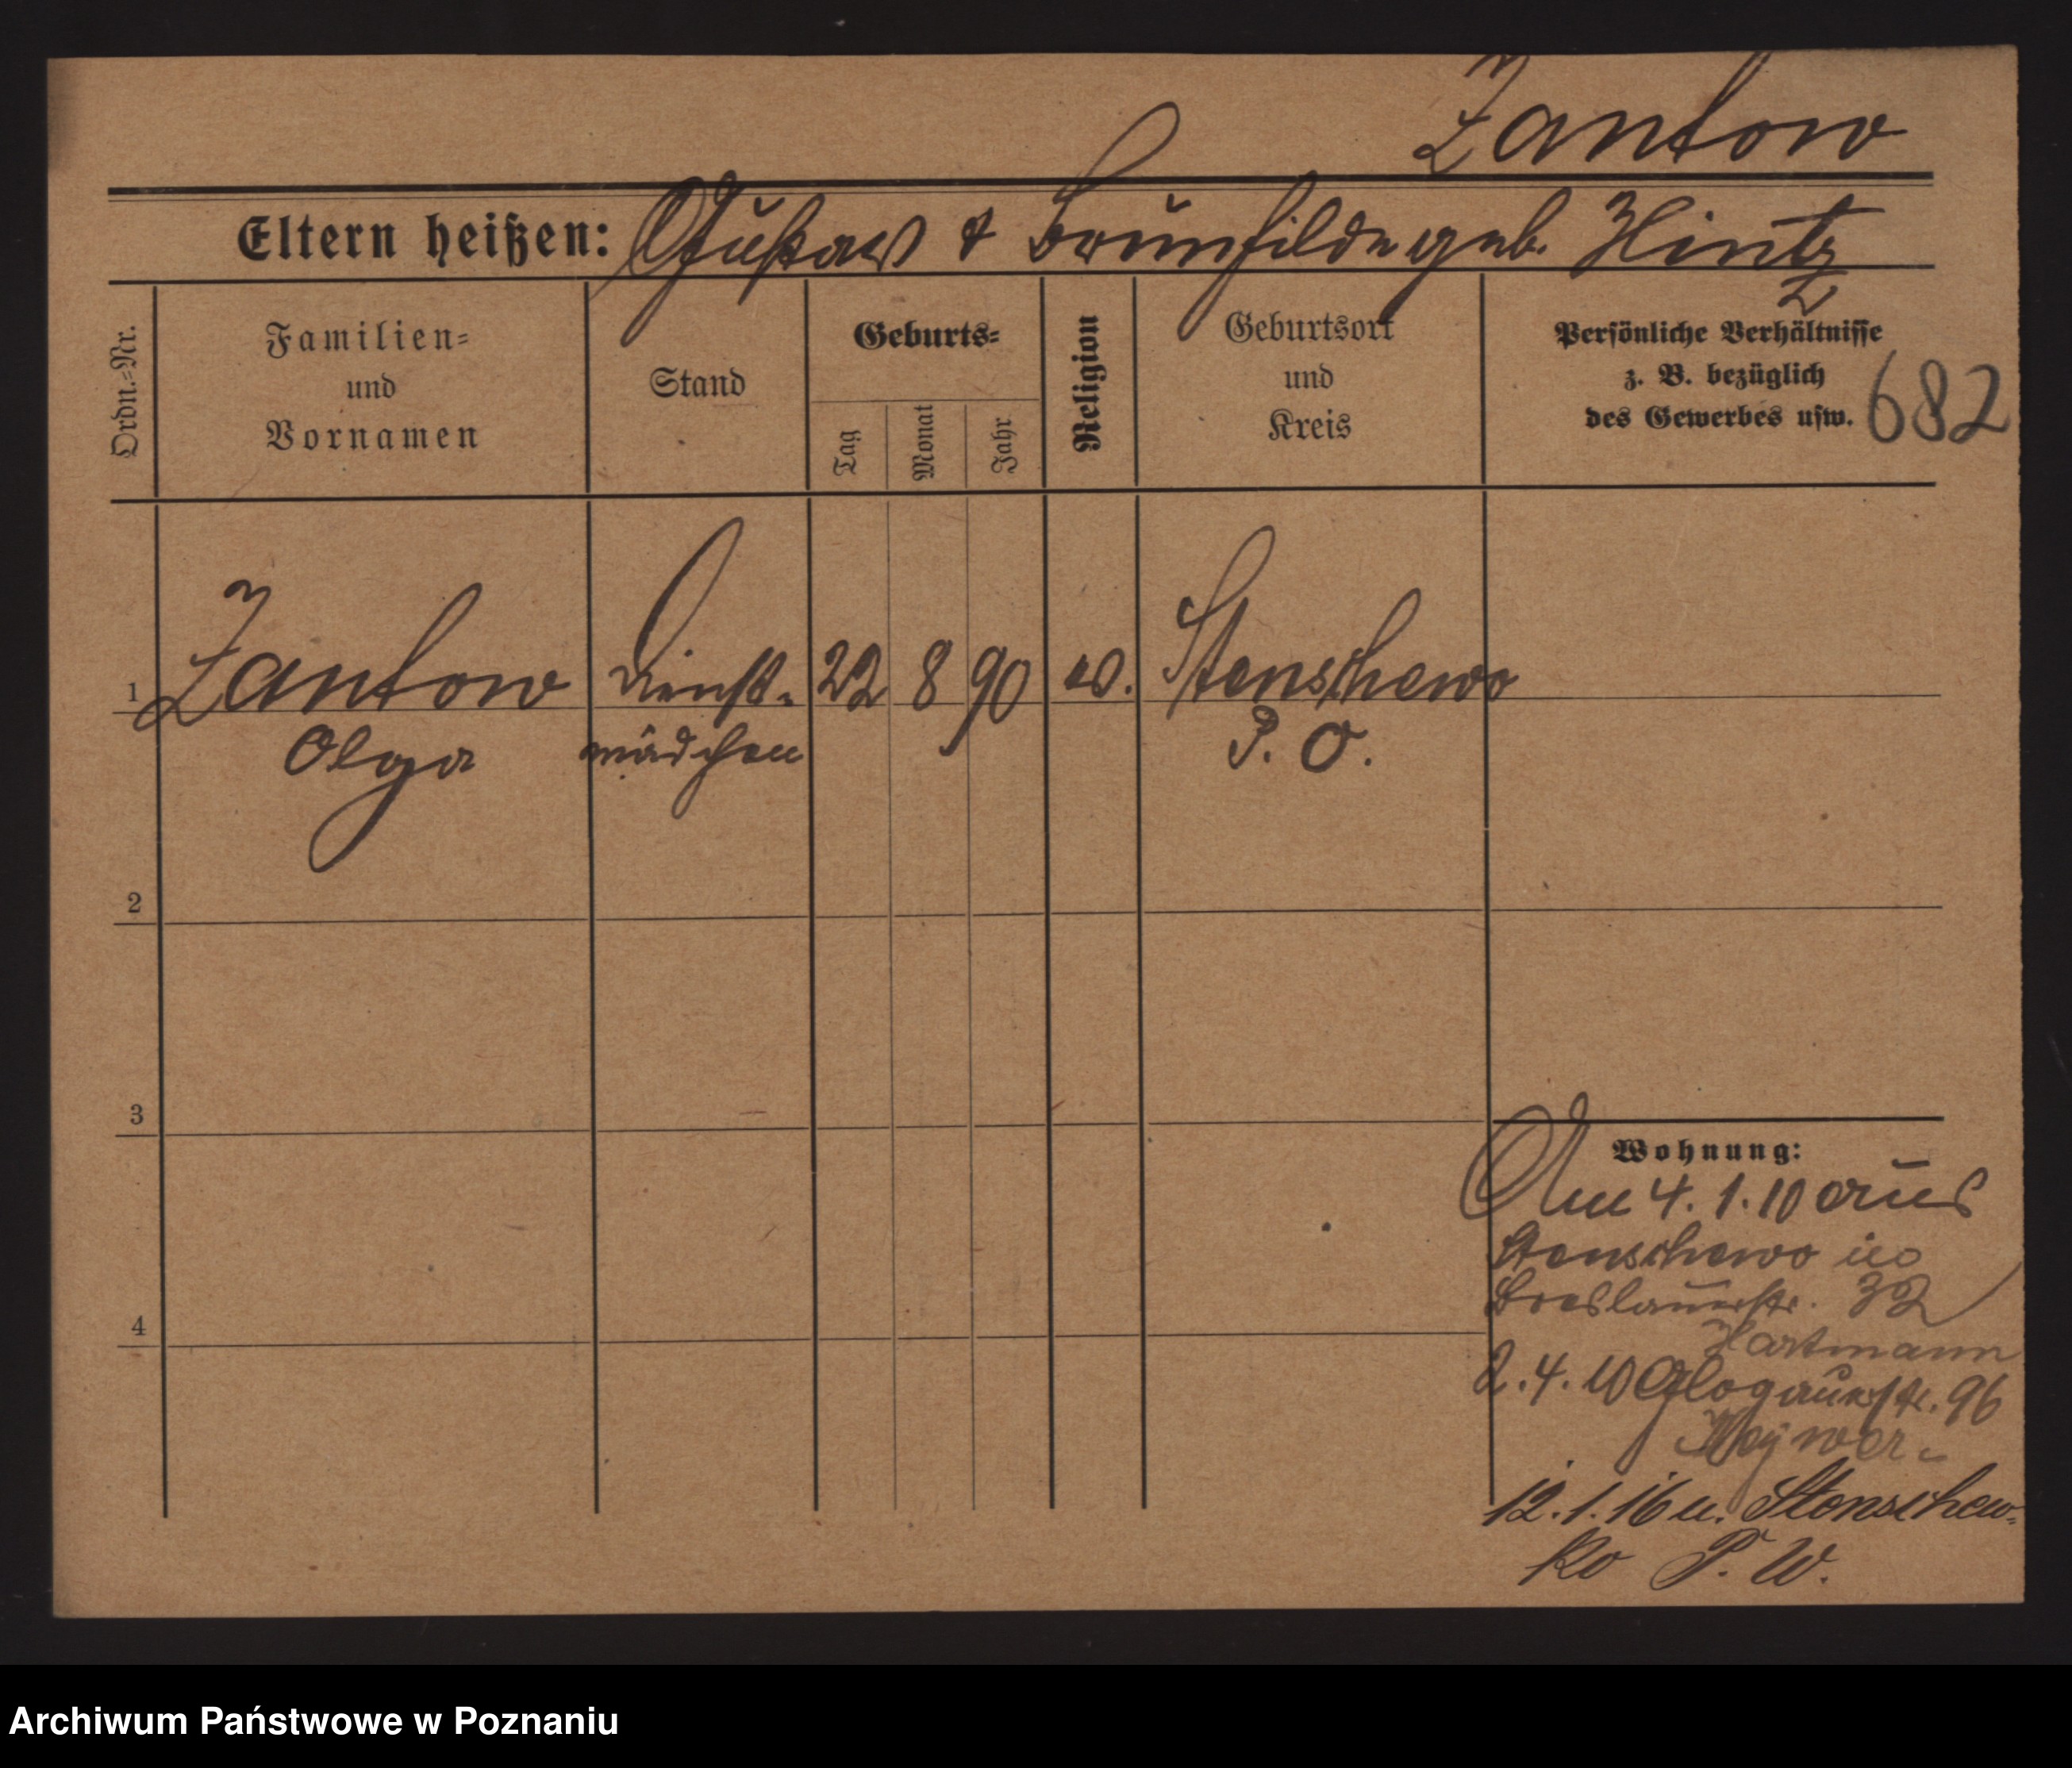 Zantow
Eltern heißen: Gustav & Brunhilde geb. Hintz
Z
Ordn.-Nr.
Familien-
und
Vornamen
Stand
Geburts-
Tag
Monat
Jahr
Religion
Geburtsort
und
Kreis
Persönliche Verhältnisse
z. B. bezüglich
des Gewerbes usw.
682
1
Zantow Dienst- 22 8 90 ev. Stenschewo
Olga mädchen P. O.
2
3
4
Wohnung:
Am 4. 1. 10 aus
Stenschewo
Breslauerstr. 32
Hartmann
2. 4. 10 Glogauerstr. 96
12. 1. 16 n. Stenschew-
ko P. W.
Archiwum Państwowe w Poznaniu